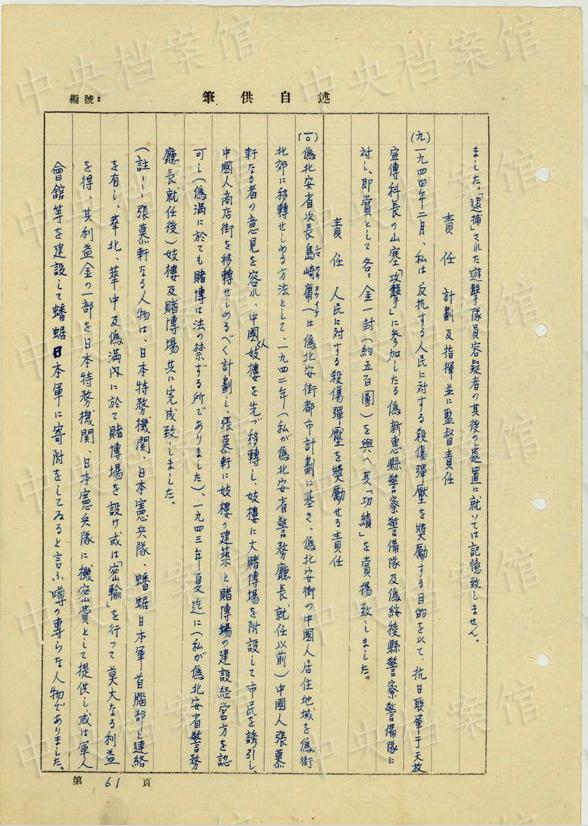 編號:
筆供自述
ました。「逮捕」された遊擊隊員容疑者の其後の處置に就いては記憶致しません。
責任 計劃及指揮並に監督責任
(九)一九四四年二月、私は反抗する人民に対する殺傷彈壓を奬勵する目的を以て、抗日联軍于天放
宣傳科長の山塞「攻擊」に参加したる偽新惠縣警察警備隊及偽綏稜縣警察警備隊に
対し、即賞として各々金一封(約五百圓)を與へ其「功績」を賞揚致しました。
責任 人民に対する殺傷彈壓を奬勵せる責任
(一〇)偽北安省次長島崎庸一は偽北安街都市計劃に基き、偽北安街の中國人居住地域を偽街
北郊に移轉せしめる方法として、一九四二年(私が偽北安省警務廳長就任以前)中國人張慕
軒なる者の意見を容れ、中國人妓樓を先づ移轉し、妓樓に大賭博場を附設して市民を誘引し、
中國人商店街を移轉せしめるべく計劃し、張慕軒に妓樓の建築と賭博場の建設経営方を認
可し(偽満に於ても賭博は法の禁ずる所でありました)、一九四三年夏迄に(私が偽北安省警務
廳長就任後)妓樓及賭博場共に完成致しました。
(註‥‥張慕軒なる人物は、日本特務機関、日本憲兵隊、蟠踞日本軍首腦部と連絡
を有し、華北、華中及偽満内に於て賭博場を設け或は「密輸」を行って莫大なる利益
を得、其利益金の一部を日本特務機関、日本憲兵隊に機密費として提供し或は軍人
會館等を建設して蟠踞日本軍に寄附をしてゐると言ふ噂の専らな人物でありました。
第 61 頁
中央档案馆